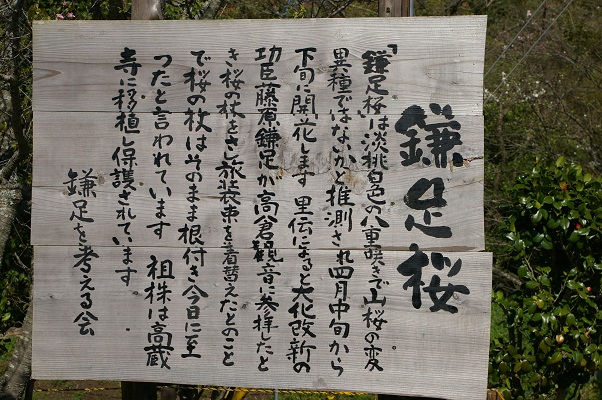 鎌足桜
「鎌足桜」は淡桃白色の八重咲きで山桜の変
異種ではないかと推測され四月中旬から
下旬に開花します。里伝によると大化改新の
功臣藤原鎌足が高倉観音に参拝したと
き桜の杖をさし旅装束を着替えたとのこと
で桜の杖はそのまま根付き今日に至
つたと言われています 祖株は高蔵
寺に移植し保護されています。
鎌足を考える会